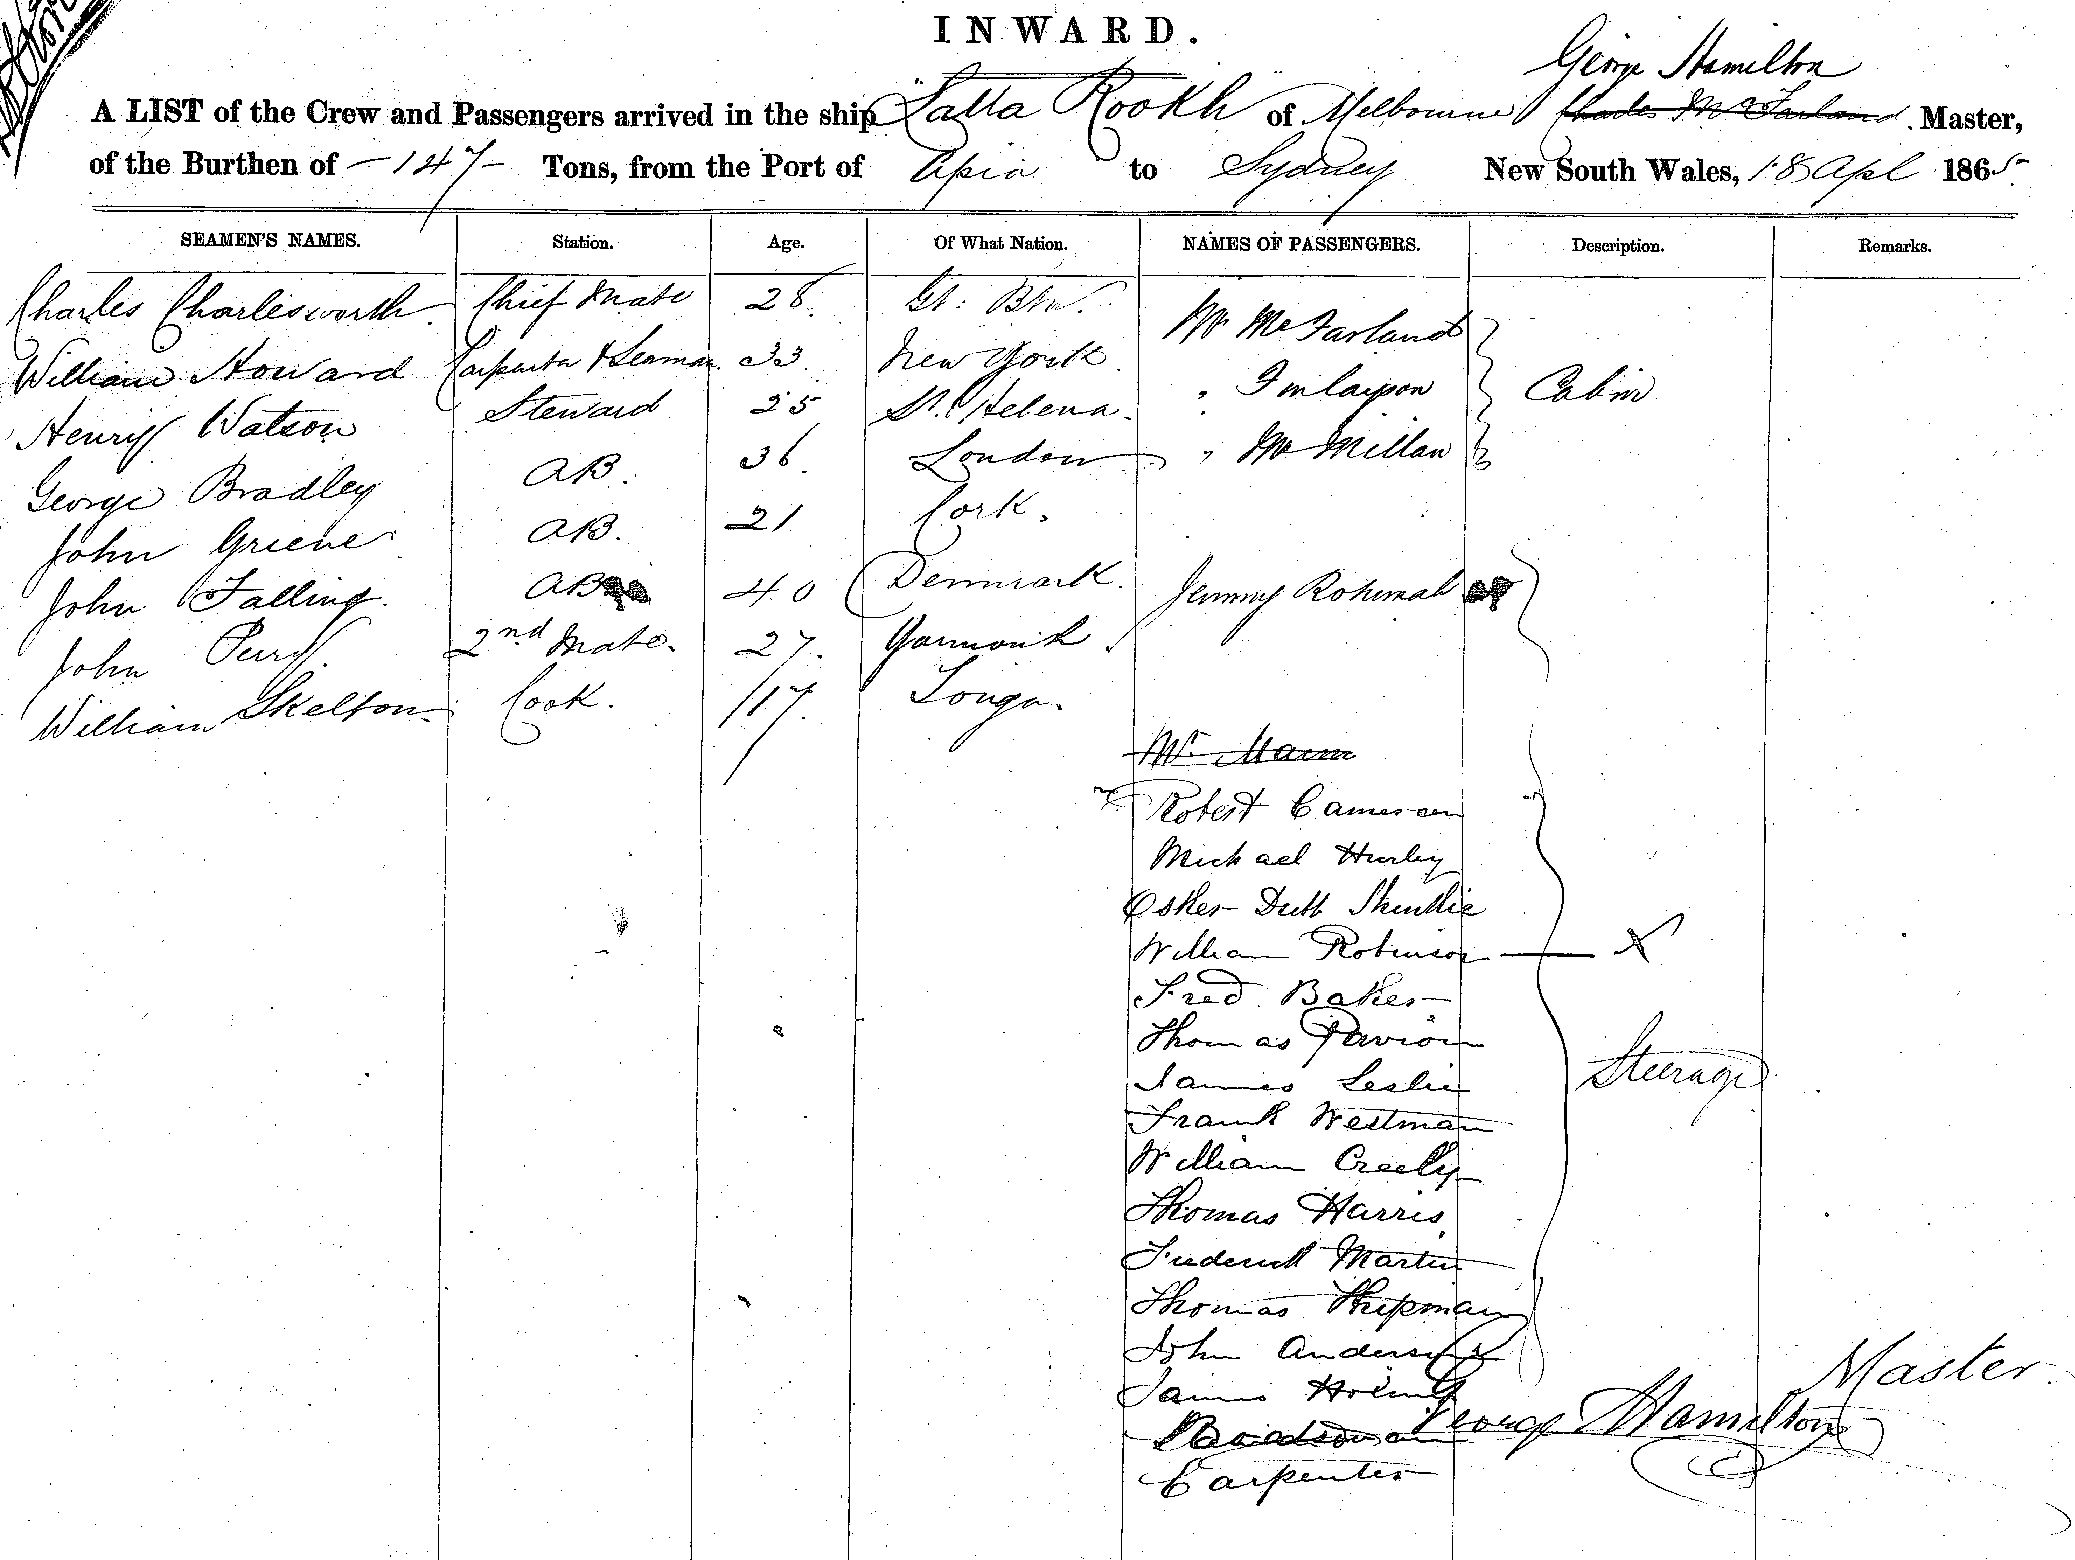 INWARD.
George Hamilton
A LIST of the Crew and Passengers arrived in the ship "Lalla Rookh of Melbourne Charles McFarland. Master,
of the Burthen of - 147 - Tons, from the Port of Apia to Sydney New South Wales, 18 Apl 1865.
SEAMEN'S NAMES. Station. Age. Of What Nation. NAMES OF PASSENGERS. Description. Remarks.
Charles Charlesworth Chief Mate 28. Gt: Btn. Mr McFarland
William Howard Carpenter & Seaman 33. New York " Finlayson Cabin
Henry Watson Steward 25 St. Helena. " McMillan
George Bradley AB. 36. London
John Griene AB. 21 Cork.
John Falling. AB 40 Denmark. Jemmy Rotumah
John Perry. 2nd Mate. 27. Yarmouth
William Skelton Cook. 17. Tonga.
Mr Mann
Robert Cameron
Michael Hurley
Osker Dutt
William Robinson X
Fred. Baker
Thomas
James Leslie Steerage
Frank Westman
William Creely
Thomas Harris
Frederick Martin
Thomas Shipman
John Anderson
James
George Hamilton Master
Carpenter